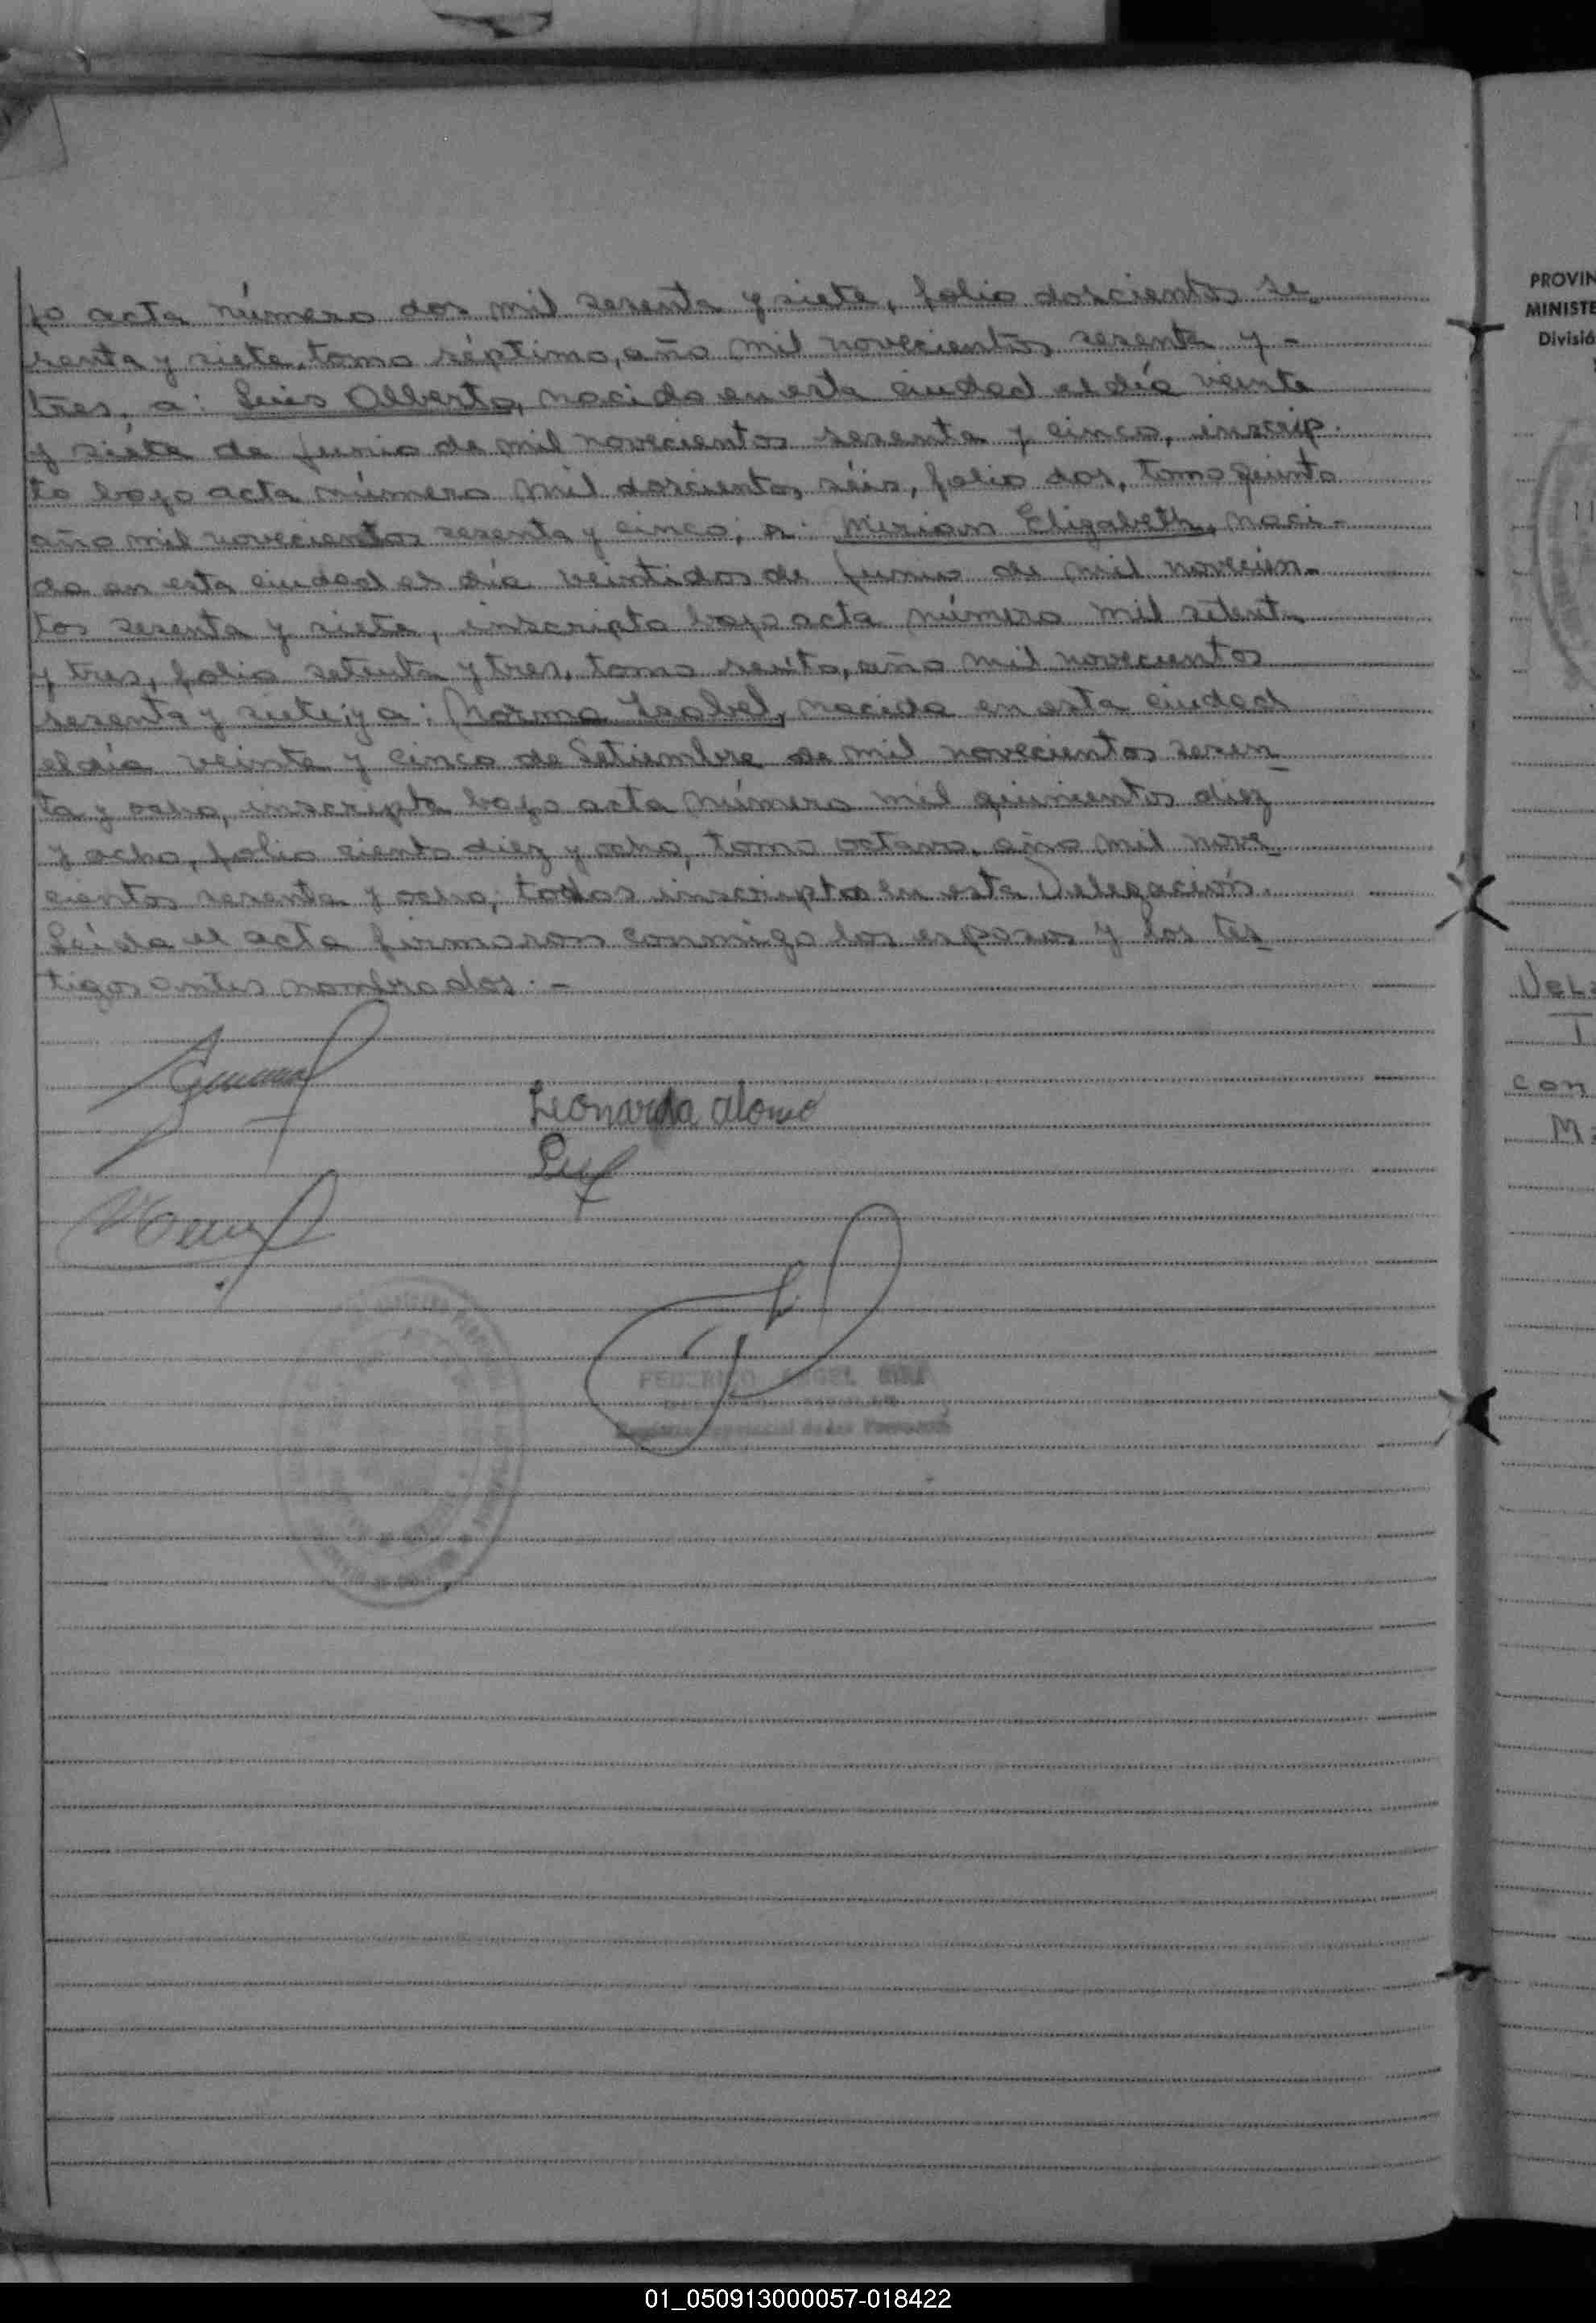 jo acta número dos mil sesenta y siete, folio doscientos se-
senta y siete, tomo séptimo, año mil novecientos sesenta y -
tres, a: Luis Alberto, nacido en esta ciudad el día veinte
y siete de Junio de mil novecientos sesenta y cinco, inscrip-
to bajo acta número mil doscientos séis, folio dos, tomo quinto
año mil novecientos sesenta y cinco; a: Mirian Elizabeth, naci-
da en esta ciudad el día veintidos de Junio de mil novecien-
tos sesenta y siete, inscripta bajo acta número mil setenta
y tres, folio setenta y tres, tomo sexto, año mil novecientos
sesenta y siete; y a: Norma Isabel, nacida en esta ciudad
el día veinte y cinco de Setiembre de mil novecientos sesen
ta y ocho, inscripta bajo acta número mil quinientos diez
y ocho, folio ciento diez y ocho, tomo octavo, año mil nove
cientos sesenta y ocho; todos inscriptos en esta Delegación.
Leída el acta firmaron conmigo los esposos y los tes
tigos antes nombrados. -
Leonarda Alonso
FEDERICO ANGEL
PROVIN
MINISTE
Divisió
con
01_050913000057-018422